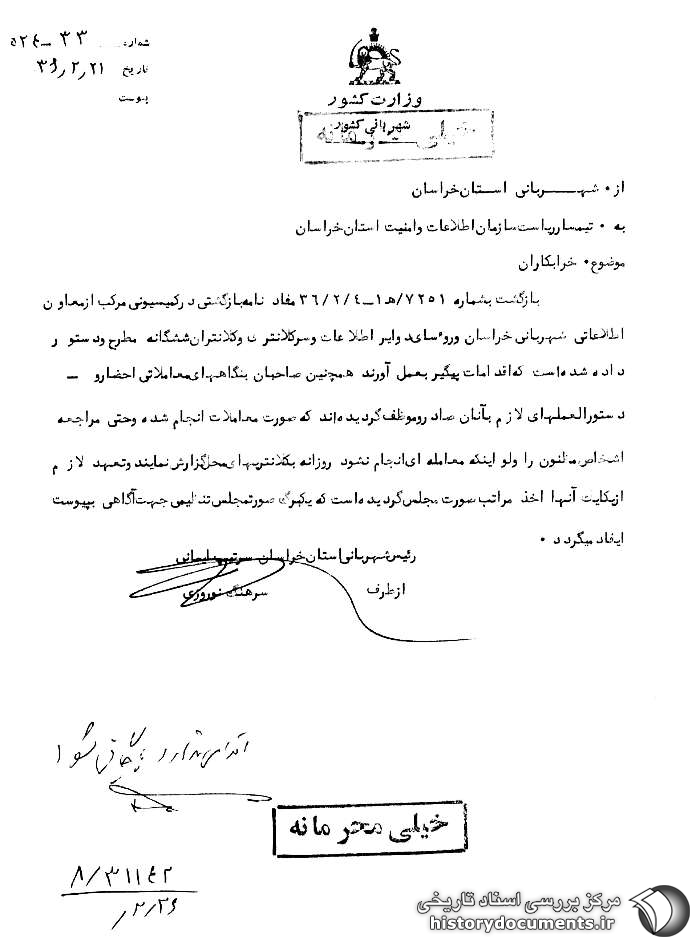 شماره ۳۳ـ۵۲۴
تاریخ ۳۶/۲/۲۱
پیوست
وزارت کشور
شهربانی کشور
خیلی محرمانه
از ۰ شهربانی استان خراسان
به ۰ تیمسار ریاست سازمان اطلاعات وامنیت استان خراسان
موضوع ۰ خرابکاران
بازگشت بشماره ۷۲۵۱/هـ۱ـ۳۶/۲/۴ مفاد نامه بازگشتی در کمیسیونی مرکب از معاون
اطلاعاتی شهربانی خراسان وروءسای دوایر اطلاعات وسرکلانتری وکلانتران ششگانه مطرح ودستور
داده شده است که اقدامات پیگیر بعمل آورند همچنین صاحبان بنگاههای معاملاتی احضار و ـ
دستورالعملهای لازم بآنان صادر وموظف گردیده اند که صورت معاملات انجام شده وحتی مراجعه
اشخاص مظنون را ولو اینکه معامله ای انجام نشود روزانه بکلانتریهای محل گزارش نمایند وتعهد لازم
از یکایک آنها اخذ مراتب صورت مجلس گردیده است که یکبرگ صورتمجلس تنظیمی جهت آگاهی بپیوست
ایفاد میگردد ۰
رئیس شهربانی استان خراسان سرتیپ
از طرف سرهنگ نوروزی
اقدامی ندارد بایگانی شود
خیلی محرمانه
۸/۳۱۱۴۲
۲/۲۶/
مرکز بررسی اسناد تاریخی
historydocuments.ir